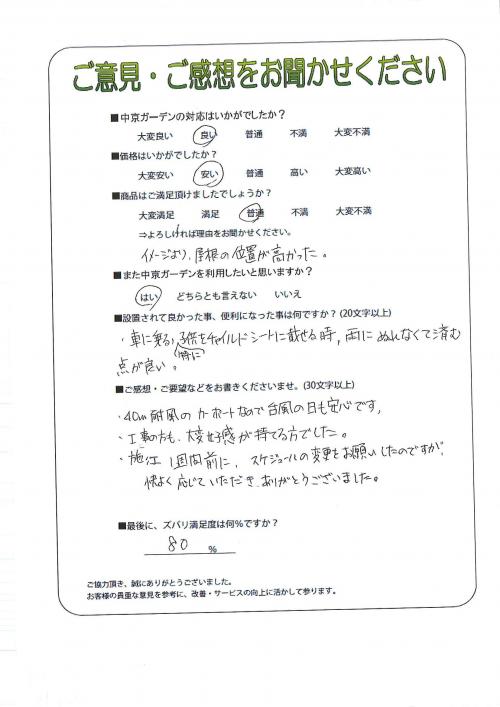 ご意見・ご感想をお聞かせください
■中京ガーデンの対応はいかがでしたか？
大変良い 良い 普通 不満 大変不満
■価格はいかがでしたか？
大変安い 安い 普通 高い 大変高い
■商品はご満足頂けましたでしょうか？
大変満足 満足 普通 不満 大変不満
⇒よろしければ理由をお聞かせください。
イメージより、屋根の位置が高かった。
■また中京ガーデンを利用したいと思いますか？
はい どちらとも言えない いいえ
■設置されて良かった事、便利になった事は何ですか？(20文字以上)
・車に乗る時、子供をチャイルドシートに載せる時、雨にぬれなくて済む
(特に)
点が良い。
■ご感想・ご要望などをお書きくださいませ。(30文字以上)
・40m耐風のカーポートなので台風の日も安心です,
・工事の方も、大変好感が持てる方でした。
・施工1週間前に、スケジュールの変更をお願いしたのですが、
快よく応じていただき、ありがとうございました。
■最後に、ズバリ満足度は何％ですか？
80 ％
ご協力頂き、誠にありがとうございました。
お客様の貴重な意見を参考に、改善・サービスの向上に活かして参ります。